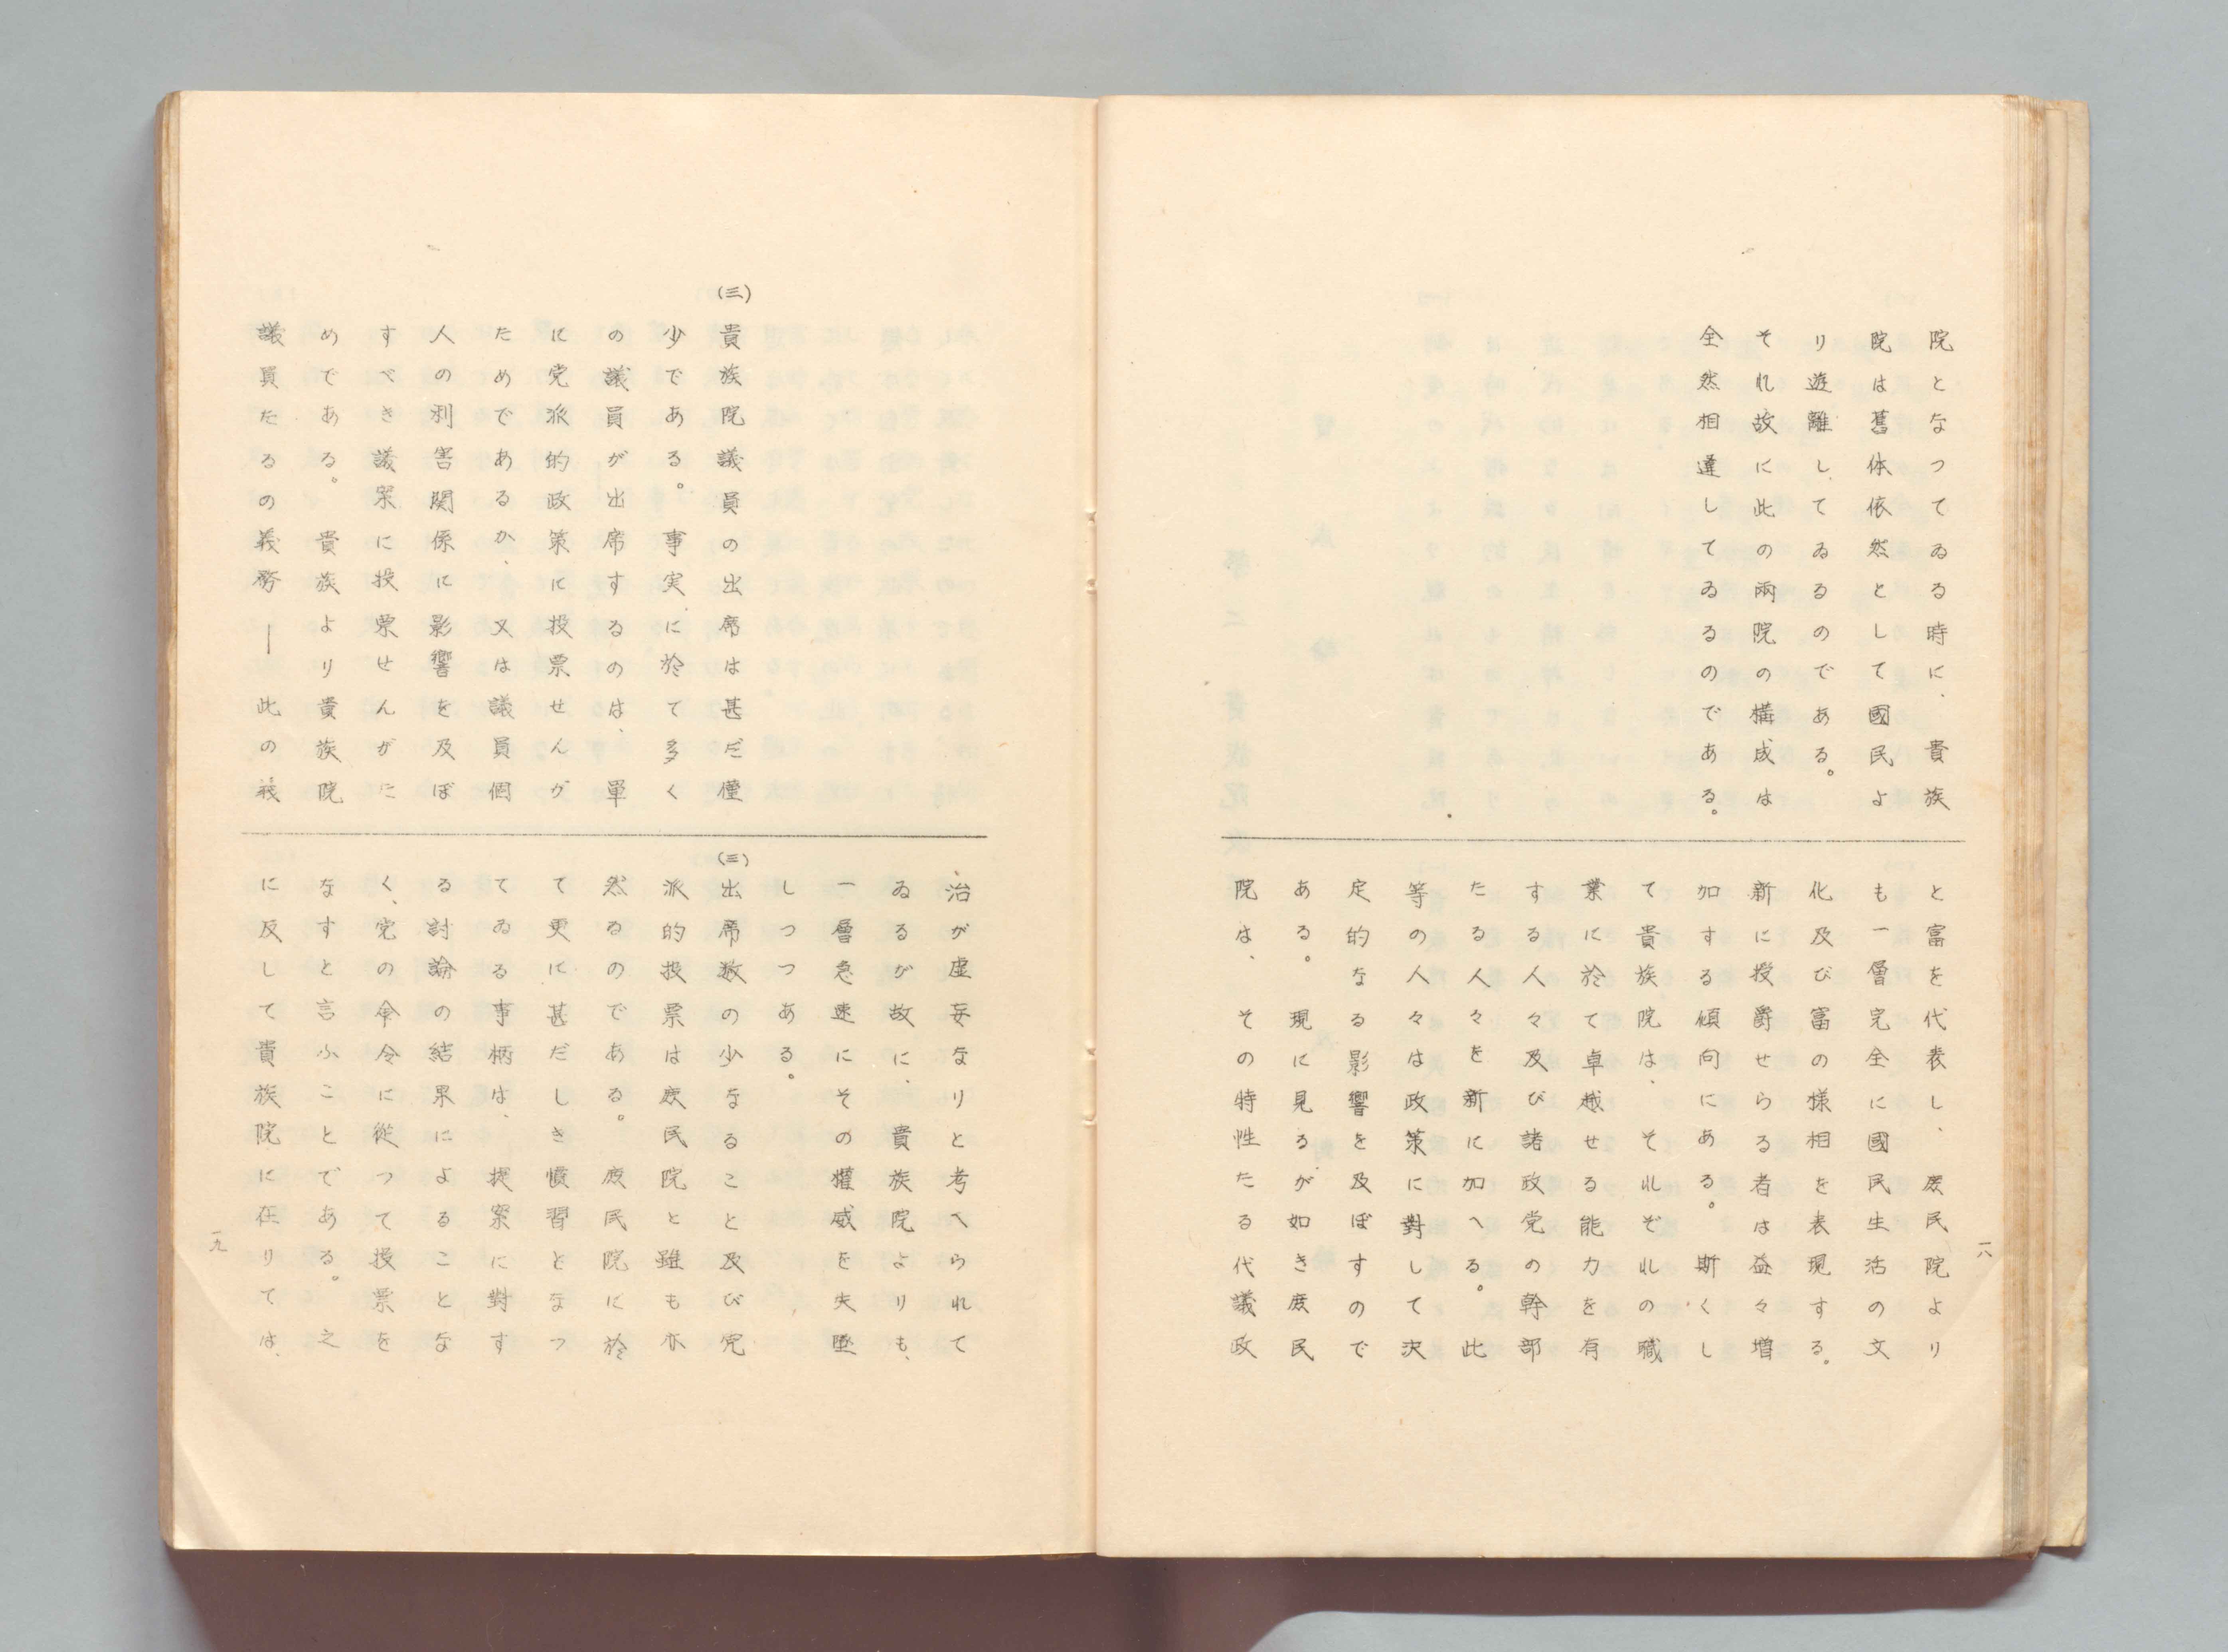 院となつてゐる時に、貴族
院は舊体依然として國民よ
り遊離してゐるのである。
それ故に此の兩院の構成は
全然相違してゐるのである。
と富を代表し、庶民院より
も一層完全に國民生活の文
化及び富の様相を表現する。
新に授爵せらる者は益々増
加する傾向にある。斯くし
て貴族院は、それぞれの職
業に於て卓越せる能力を有
する人々及び諸政党の幹部
たる人々を新に加へる。此
等の人々は政策に對して決
定的なる影響を及ぼすので
ある。現に見るが如き庶民
院は、その特性たる代議政
一八
(三)
貴族院議員の出席は甚だ僅
少である。事実に於て多く
の議員が出席するのは、單
に党派的政策に投票せんが
ためであるか、又は議員個
人の利害関係に影響を及ぼ
すべき議案に投票せんがに
めである。貴族より貴族院
議員たるの義務―此の義
治が虚妄なりと考へられて
ゐるが故に、貴族院よりも、
一層急速にその権威を失墜
しつつある。
(三)
出席数の少なること及び党
派的投票は庶民院と雖も亦
然るのである。庶民院に於
て更に甚だしき慣習となつ
てゐる事柄は、提案に對す
る討論の結果によることな
く、党の命令に從つて投票を
なすと言ふことである。之
に反して貴族院に在りては、
一九